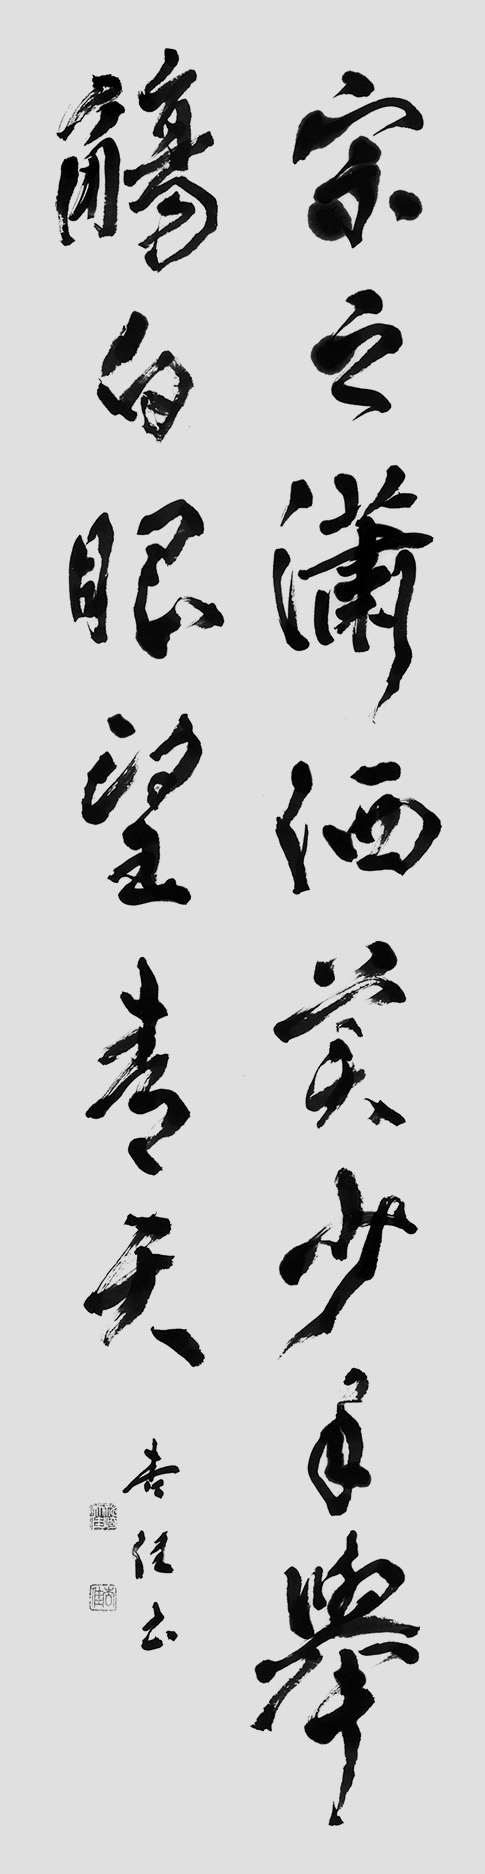 宗之瀟洒美少年舉
觴白眼望青天
香佳书